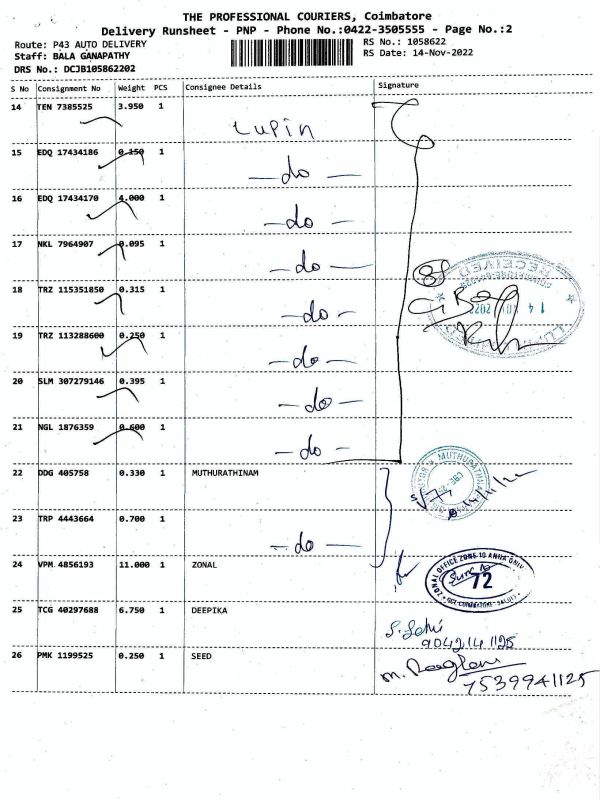 THE PROFESSIONAL COURIERS, Coimbatore
Delivery Runsheet - PNP - Phone No.:0422-3505555 - Page No.:2
Route: P43 AUTO DELIVERY
RS No.: 1058622
Staff: BALA GANAPATHY
RS Date: 14-Nov-2022
DRS No.: DCJB105862202
S No Consignment No Weight PCS Consignee Details Signature
14 TEN 7385525 3.950 1 Lupin
15 EDQ 17434186 0.150 1 -do-
16 EDQ 17434170 4.000 1 -do-
17 NKL 7964907 0.095 1 -do-
18 TRZ 115351850 0.315 1 -do-
RECEIVED
19 TRZ 113288600 0.250 1 -do-
20 SLM 307279146 0.395 1 -do-
21 NGL 1876359 0.600 1 -do-
22 DDG 405758 0.330 1 MUTHURATHINAM
23 TRP 4443664 0.700 1 -do-
24 VPM 4856193 11.000 1 ZONAL
72
25 TCG 40297688 6.750 1 DEEPIKA
9042141125
26 PMK 1199525 0.250 1 SEED
7539941125